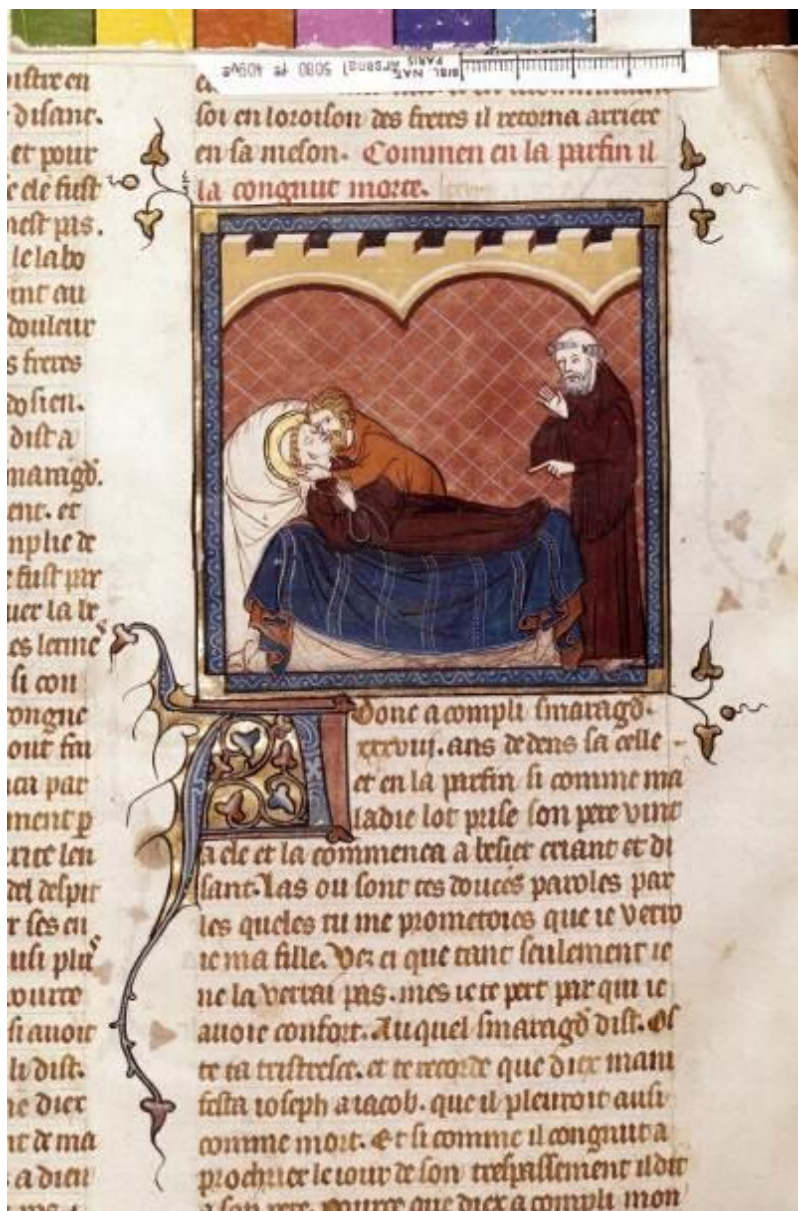 BIBL. NAT.
PARIS
Arsenal 5080 fº 409vº
disant.
et pour
e ele fust
nest pas.
le labo
ent au
douleur
s freres
do sien.
dist a
maragd.
ent. et
mplie de
e fust par
es lermes
si con
ongne
out fai
par
ment p
del despit
r ses en
usi plus
ource
si auoit
li dist.
ne diex
nt de ma
a dieu
soi en loroison des freres il retorna arriere
en sa meson. Commen en la parfin il
la congnut morte.
A donc a compli smaragd.
xxxviii. ans dedens sa celle
et en la parfin si comme ma
ladie lot prise son pere vint
a ele et la commenca a besier criant et di
sant. Las ou sont tes douces paroles par
les queles tu me prometoies que ie verro
ie ma fille. Vez ci que tant seulement ie
ne la verrai pas. mes ie te pert par qui ie
auoie confort. Au quel smaragd dist. Os
te ta tristesce. et te recorde que diex mani
festa ioseph a iacob. que il pleuroit ausi
comme mort. Et si comme il congnut a
prochier le iour de son trespassement il dit
a son pere. pource que diex a compli mon